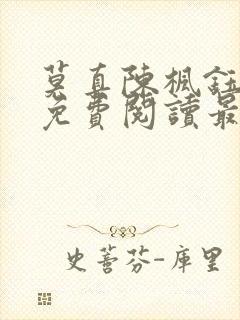 莫真陳楓鈺
免費閱讀最
史蒈芬-庫里